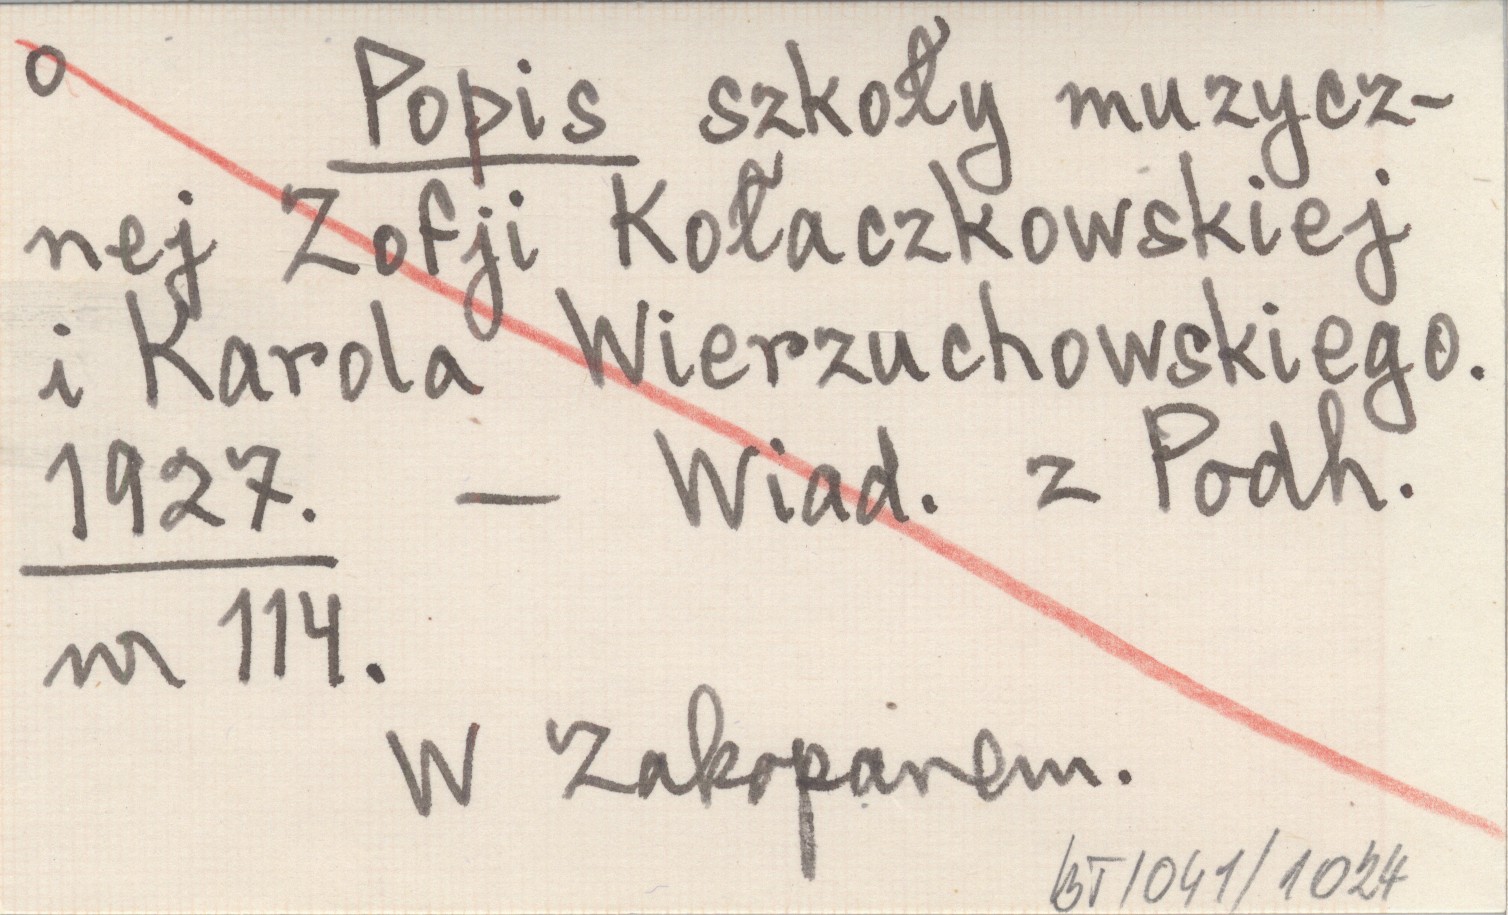 o Popis szkoły muzycz-
nej Zofji Kołaczkowskiej
i Karola Wierzuchowskiego.
1927. — Wiad. z Podh.
nr 114.
W Zakopanem.
BT/041/1024